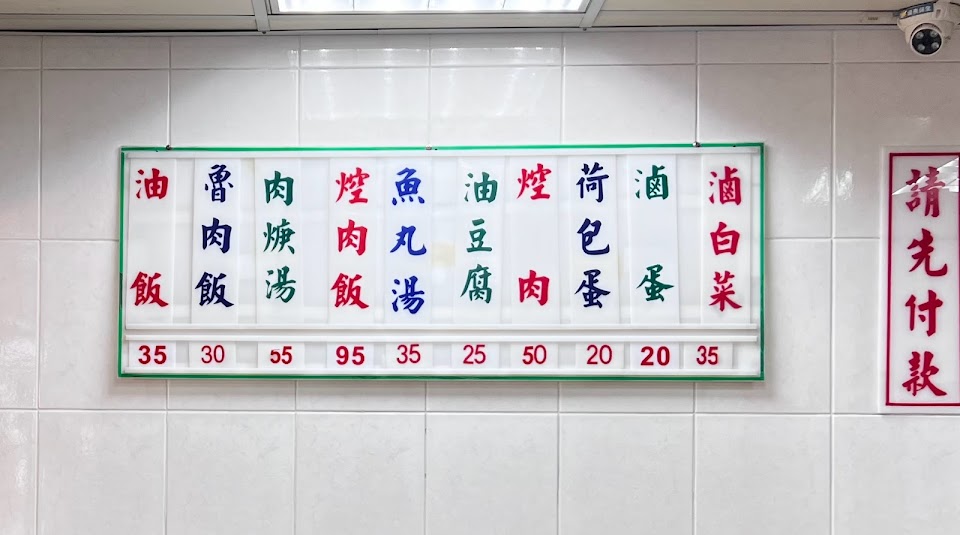 油飯
魯肉飯
肉焿湯
焢肉飯
魚丸湯
油豆腐
焢肉
荷包蛋
滷蛋
滷白菜
35 30 55 95 35 25 50 20 20 35
請先付款